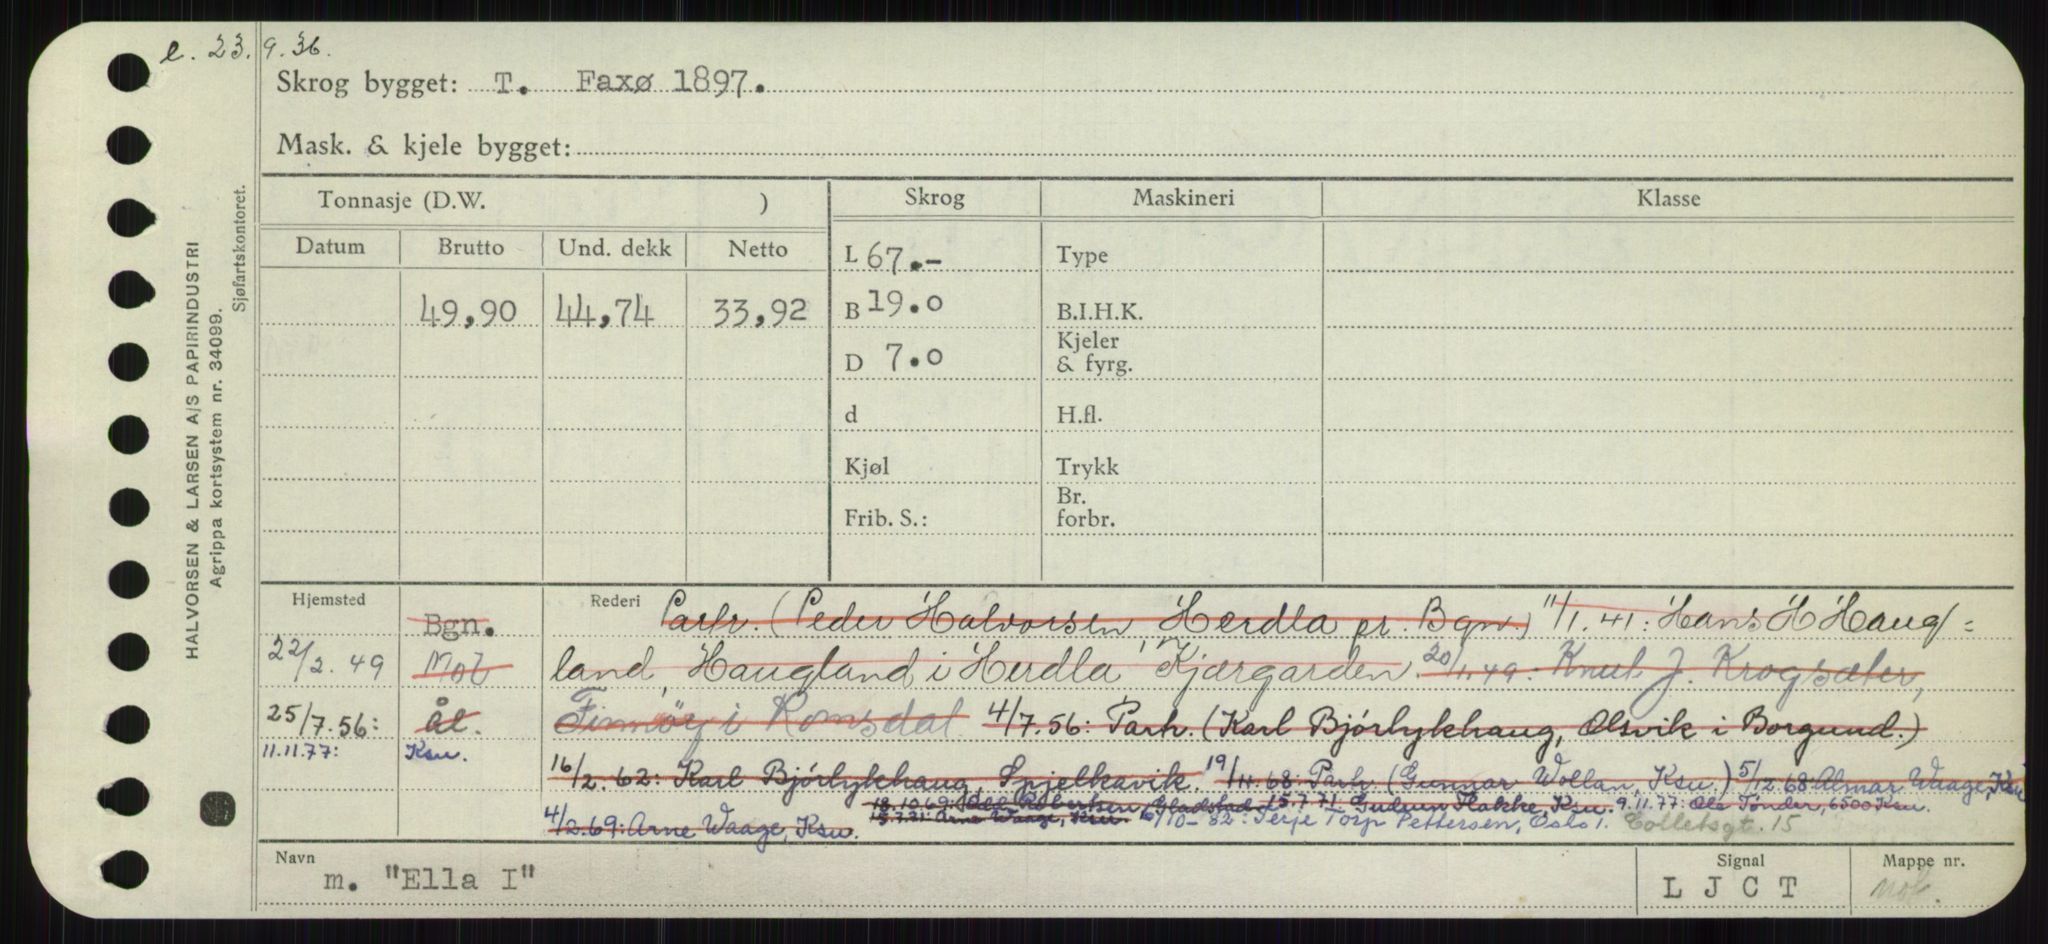 e. 23.9.36.
Skrog bygget: T. Faxø 1897.
Mask. & kjele bygget:
HALVORSEN & LARSEN A/S PAPIRINDUSTRI
Agrippa kortsystem nr. 34099.
Sjøfartskontoret.
Tonnasje (D.W. ) Skrog Maskineri Klasse
Datum Brutto Und. dekk Netto
49,90 44,74 33,92
L 67.-
B 19.0
D 7.0
d
Kjøl
Frib. S.:
Type
B.I.H.K.
Kjeler
& fyrg.
H.fl.
Trykk
Br.
forbr.
Hjemsted Rederi
Bgn. Partr. (Peder Halvorsen Herdla pr. Bgn.) 11/1.41: Hans H Haug=
22/2.49 Mol land, Haugland i Herdla Kjærgarden. 20/1.49: Knut J. Krogsæter,
25/7.56: ål. i Romsdal 4/7.56: Partr. (Karl Bjørlykhaug, Olsvik i Borgund.)
11.11.77: Ksu.
16/2.62: Karl Bjørlykhaug, Spjelkavik. 19/4.68: Partr. (Gunnar Wollan, Ksu.) 5/12.68: Almar Waage, Ksu
18.10.69: Robertsen, 15.7.71 Gudrun Flakke, Ksu. 9.11.77: Ole Tønder, 6500 Ksu.
4/2.69: Arne Waage, Ksu. 15.7.71: Arne Waage, Ksu 10-82: Terje Torp Pettersen, Oslo 1. Colletsgt. 15
Navn Signal Mappe nr.
m. "Ella I" L J C T mob.